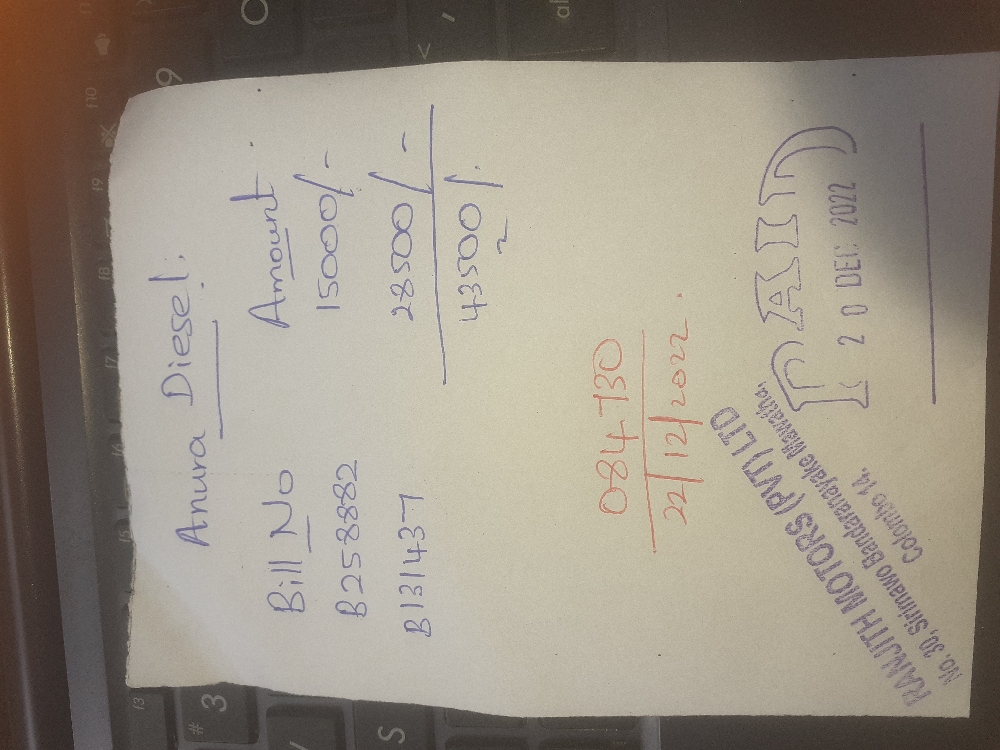 Anura Diesel.
Bill No Amount
B258882 15000/-
B131437 28500/-
43500/-
084730
22/12/2022.
PAID
20 DEC 2022
RANJITH MOTORS (PVT) LTD
No. 30, Sirimawo Bandaranayake Mawatha,
Colombo 14.